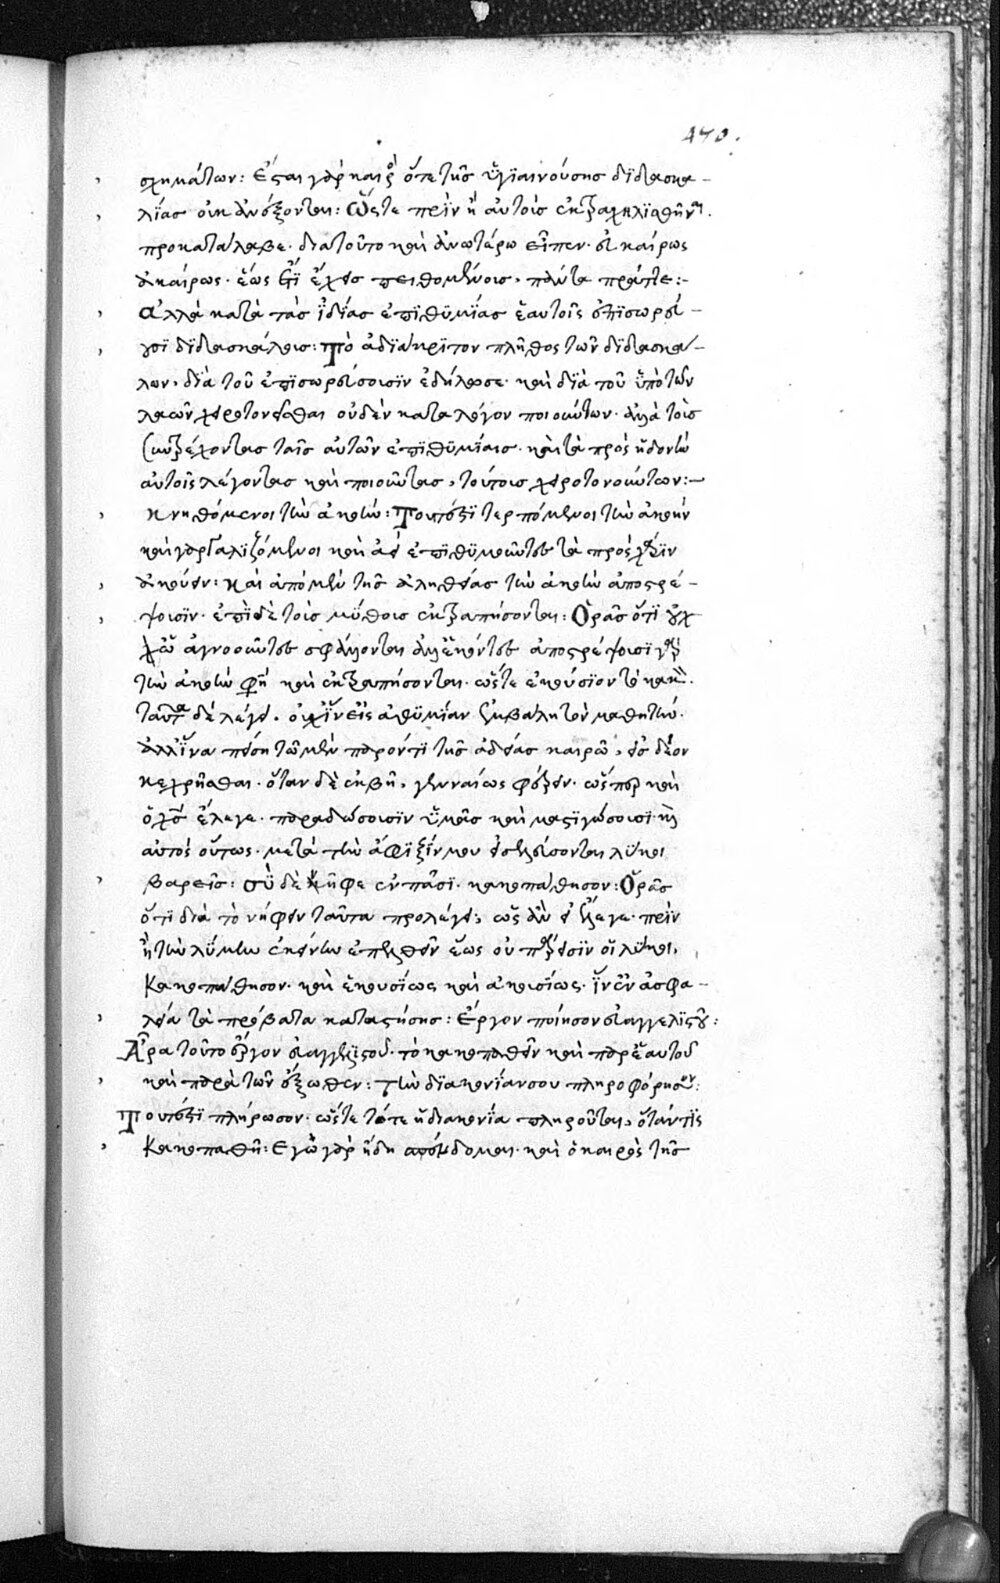 470.
σχημάτων: Ἔσται γὰρ καιρὸς ὅτε τῆς ὑγιαινούσης διδασκα-
λίας οὐκ ἀνέξονται: Ὥστε πρὶν ἢ αὐτοὺς ἐκτραχηλισθῆναι.
προκατάλαβε. διατοῦτο καὶ ἀνωτέρω εἶπεν. εὐκαίρως
ἀκαίρως. ἕως ἔτι ἔχεις πειθομένους, πάντα πράττε:-
ἀλλὰ κατὰ τὰς ἰδίας ἐπιθυμίας ἑαυτοῖς ἐπισωρεύ-
σουσι διδασκάλους: Τὸ ἀδιάκριτον πλῆθος τῶν διδασκά-
λων, διὰ τοῦ ἐπισωρεύσουσιν ἐδήλωσε. καὶ διὰ τοῦ ὑπὸ τῶν
λαῶν χειροτονεῖσθαι οὐδὲν κατὰ λόγον ποιούντων. ἀλλὰ τοὺς
συντρέχοντας ταῖς αὐτῶν ἐπιθυμίαις. καὶ τὰ πρὸς ἡδονὴν
αὐτοῖς λέγοντας καὶ ποιοῦντας, τούτους χειροτονούντων:-
κνηθόμενοι τὴν ἀκοήν: Τουτέστι τερπόμενοι τὴν ἀκοὴν
καὶ γαργαλιζόμενοι καὶ ἀεὶ ἐπιθυμοῦντες τὰ πρὸς χάριν
ἀκούειν: καὶ ἀπὸ μὲν τῆς ἀληθείας τὴν ἀκοὴν ἀποστρέ-
ψουσιν. ἐπὶ δὲ τοὺς μύθους ἐκτραπήσονται: Ὁρᾷς ὅτι οὐχ
ὡς ἀγνοοῦντες σφάλλονται ἀλλ' ἑκόντες ἀποστρέψουσι γὰρ
τὴν ἀκοὴν φησὶ καὶ ἐκτραπήσονται. ὥστε ἑκούσιον τὸ κακόν.
ταῦτα δὲ λέγει. οὐχ ἵν' εἰς ἀθυμίαν ἐμβάλῃ τὸν μαθητήν.
ἀλλ' ἵνα πείσῃ τῷ μὲν παρόντι τῆς ἀδείας καιρῷ, εἰς δέον
κεχρῆσθαι. ὅταν δὲ ἐκβῇ, γενναίως φέρειν. ὥσπερ καὶ
ὁ χριστὸς ἔλεγε. παραδώσουσιν ὑμᾶς καὶ μαστιγώσουσι. καὶ
αὐτὸς οὕτως. μετὰ τὴν ἄφιξίν μου εἰσελεύσονται λύκοι
βαρεῖς: σὺ δὲ νῆφε ἐν πᾶσι. κακοπάθησον: Ὁρᾷς
ὅτι διὰ τὸ νήφειν ταῦτα προλέγει, ὡς ἂν εἰ ἔλεγε. πρὶν
ἢ τὴν λύμην ἐκείνην ἐπελθεῖν ἕως οὐ πάρεισιν οἱ λύκοι,
κακοπάθησον. καὶ ἑκουσίως καὶ ἀκουσίως. ἵν' ἐν ἀσφα-
λείᾳ τὰ πρόβατα καταστήσῃς: Ἔργον ποίησον εὐαγγελιστοῦ:
Ἄρα τοῦτο ἔργον εὐαγγελιστοῦ. τὸ κακοπαθεῖν καὶ παρ' ἑαυτοῦ
καὶ παρὰ τῶν ἔξωθεν: τὴν διακονίαν σου πληροφόρησον:
Τουτέστι πλήρωσον. ὥστε τότε ἡ διακονία πληροῦται, ὅταν τις
κακοπαθῇ: Ἐγὼ γὰρ ἤδη σπένδομαι. καὶ ὁ καιρὸς τῆς